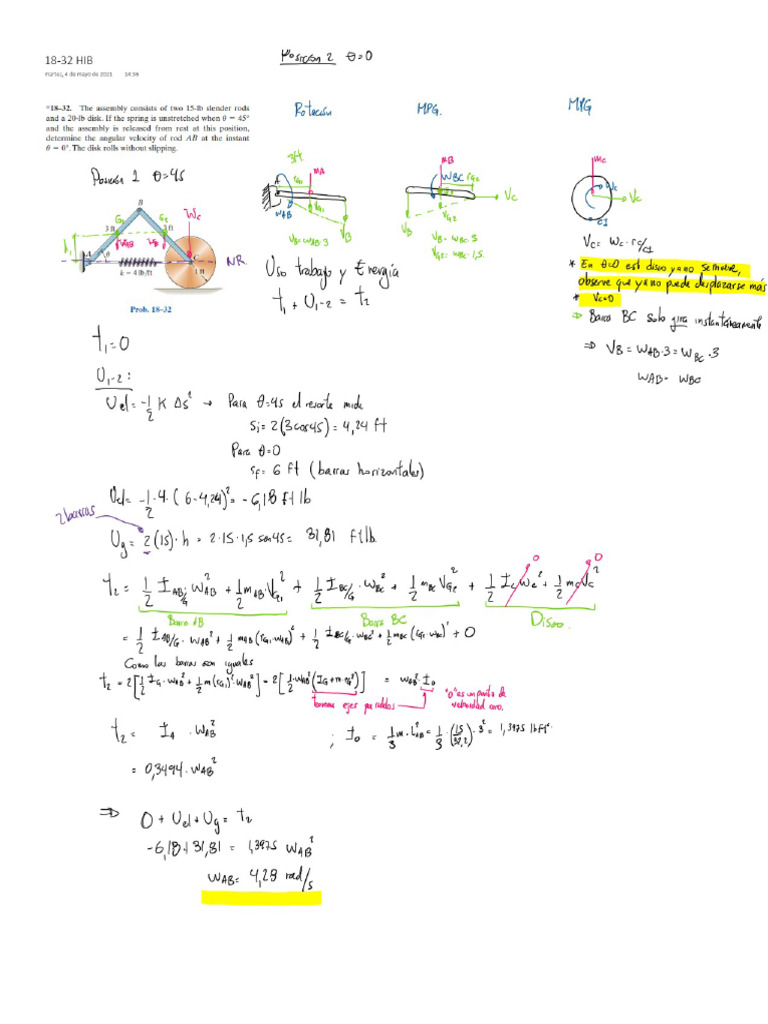 18-32 HIB
martes, 4 de mayo de 2021 14:56
Posición 2 θ=0
*18–32. The assembly consists of two 15-lb slender rods
and a 20-lb disk. If the spring is unstretched when θ = 45°
and the assembly is released from rest at this position,
determine the angular velocity of rod AB at the instant
θ = 0°. The disk rolls without slipping.
Posición 1 θ=45
B
G1 G2 Wc
3 ft 3 ft
h1 WAB WB
A θ C
NR.
k = 4 lb/ft 1 ft
Prob. 18–32
Rotación
3ft
A rG1 MA
WAB VG1
VB
VB = WAB·3
MPG.
MB
WBC rG2
VC
VB VG2
VB = WBC·3
VG2 = WBC·1,5
MPG
MC
WC
VC
CI
VC = WC · rC/CI
* En θ=0 est disco ya no se mueve,
observe que ya no puede desplazarse más
* VC=0
⇒ Barra BC solo gira instantáneamente
⇒ VB = WAB·3 = WBC·3
WAB = WBC
Uso trabajo y Energía
t1 + U1-2 = t2
t1=0
U1-2:
Uel = -1/2 K Δs² → Para θ=45 el resorte mide
si = 2(3cos45) = 4,24 ft
Para θ=0
sf = 6 ft (barras horizontales)
Uel = -1/2·4·(6-4,24)² = -6,18 ft lb
2 barras
Ug = 2(15)·h = 2·15·1,5 sen45 = 31,81 ft lb
t2 = 1/2 IAB/G WAB² + 1/2 mAB·VG1² + 1/2 IBC/G·WBC² + 1/2 mBC VG2² + 1/2 IC WC² + 1/2 mC VC²
0 0
Barra AB Barra BC Disco.
= 1/2 IAB/G·WAB² + 1/2 mAB (rG1·WAB)² + 1/2 IBC/G·WBC² + 1/2 mBC (rG2·WBC)² + 0
Como las barras son iguales
t2 = 2[1/2 IG·WAB² + 1/2 m(rG)²·WAB²] = 2[1/2·WAB²(IG+m·rG²)] = WAB²·IO
teorema ejes paralelos
"O" es un punto de
velocidad cero.
t2 = IA · WAB² ; IO = 1/3 m·LAB² = 1/3·(15/32,2)·3² = 1,3975 lb ft²
= 0,3494·WAB²
⇒ 0 + Uel + Ug = t2
-6,18+31,81 = 1,3975 WAB²
WAB = 4,28 rad/s